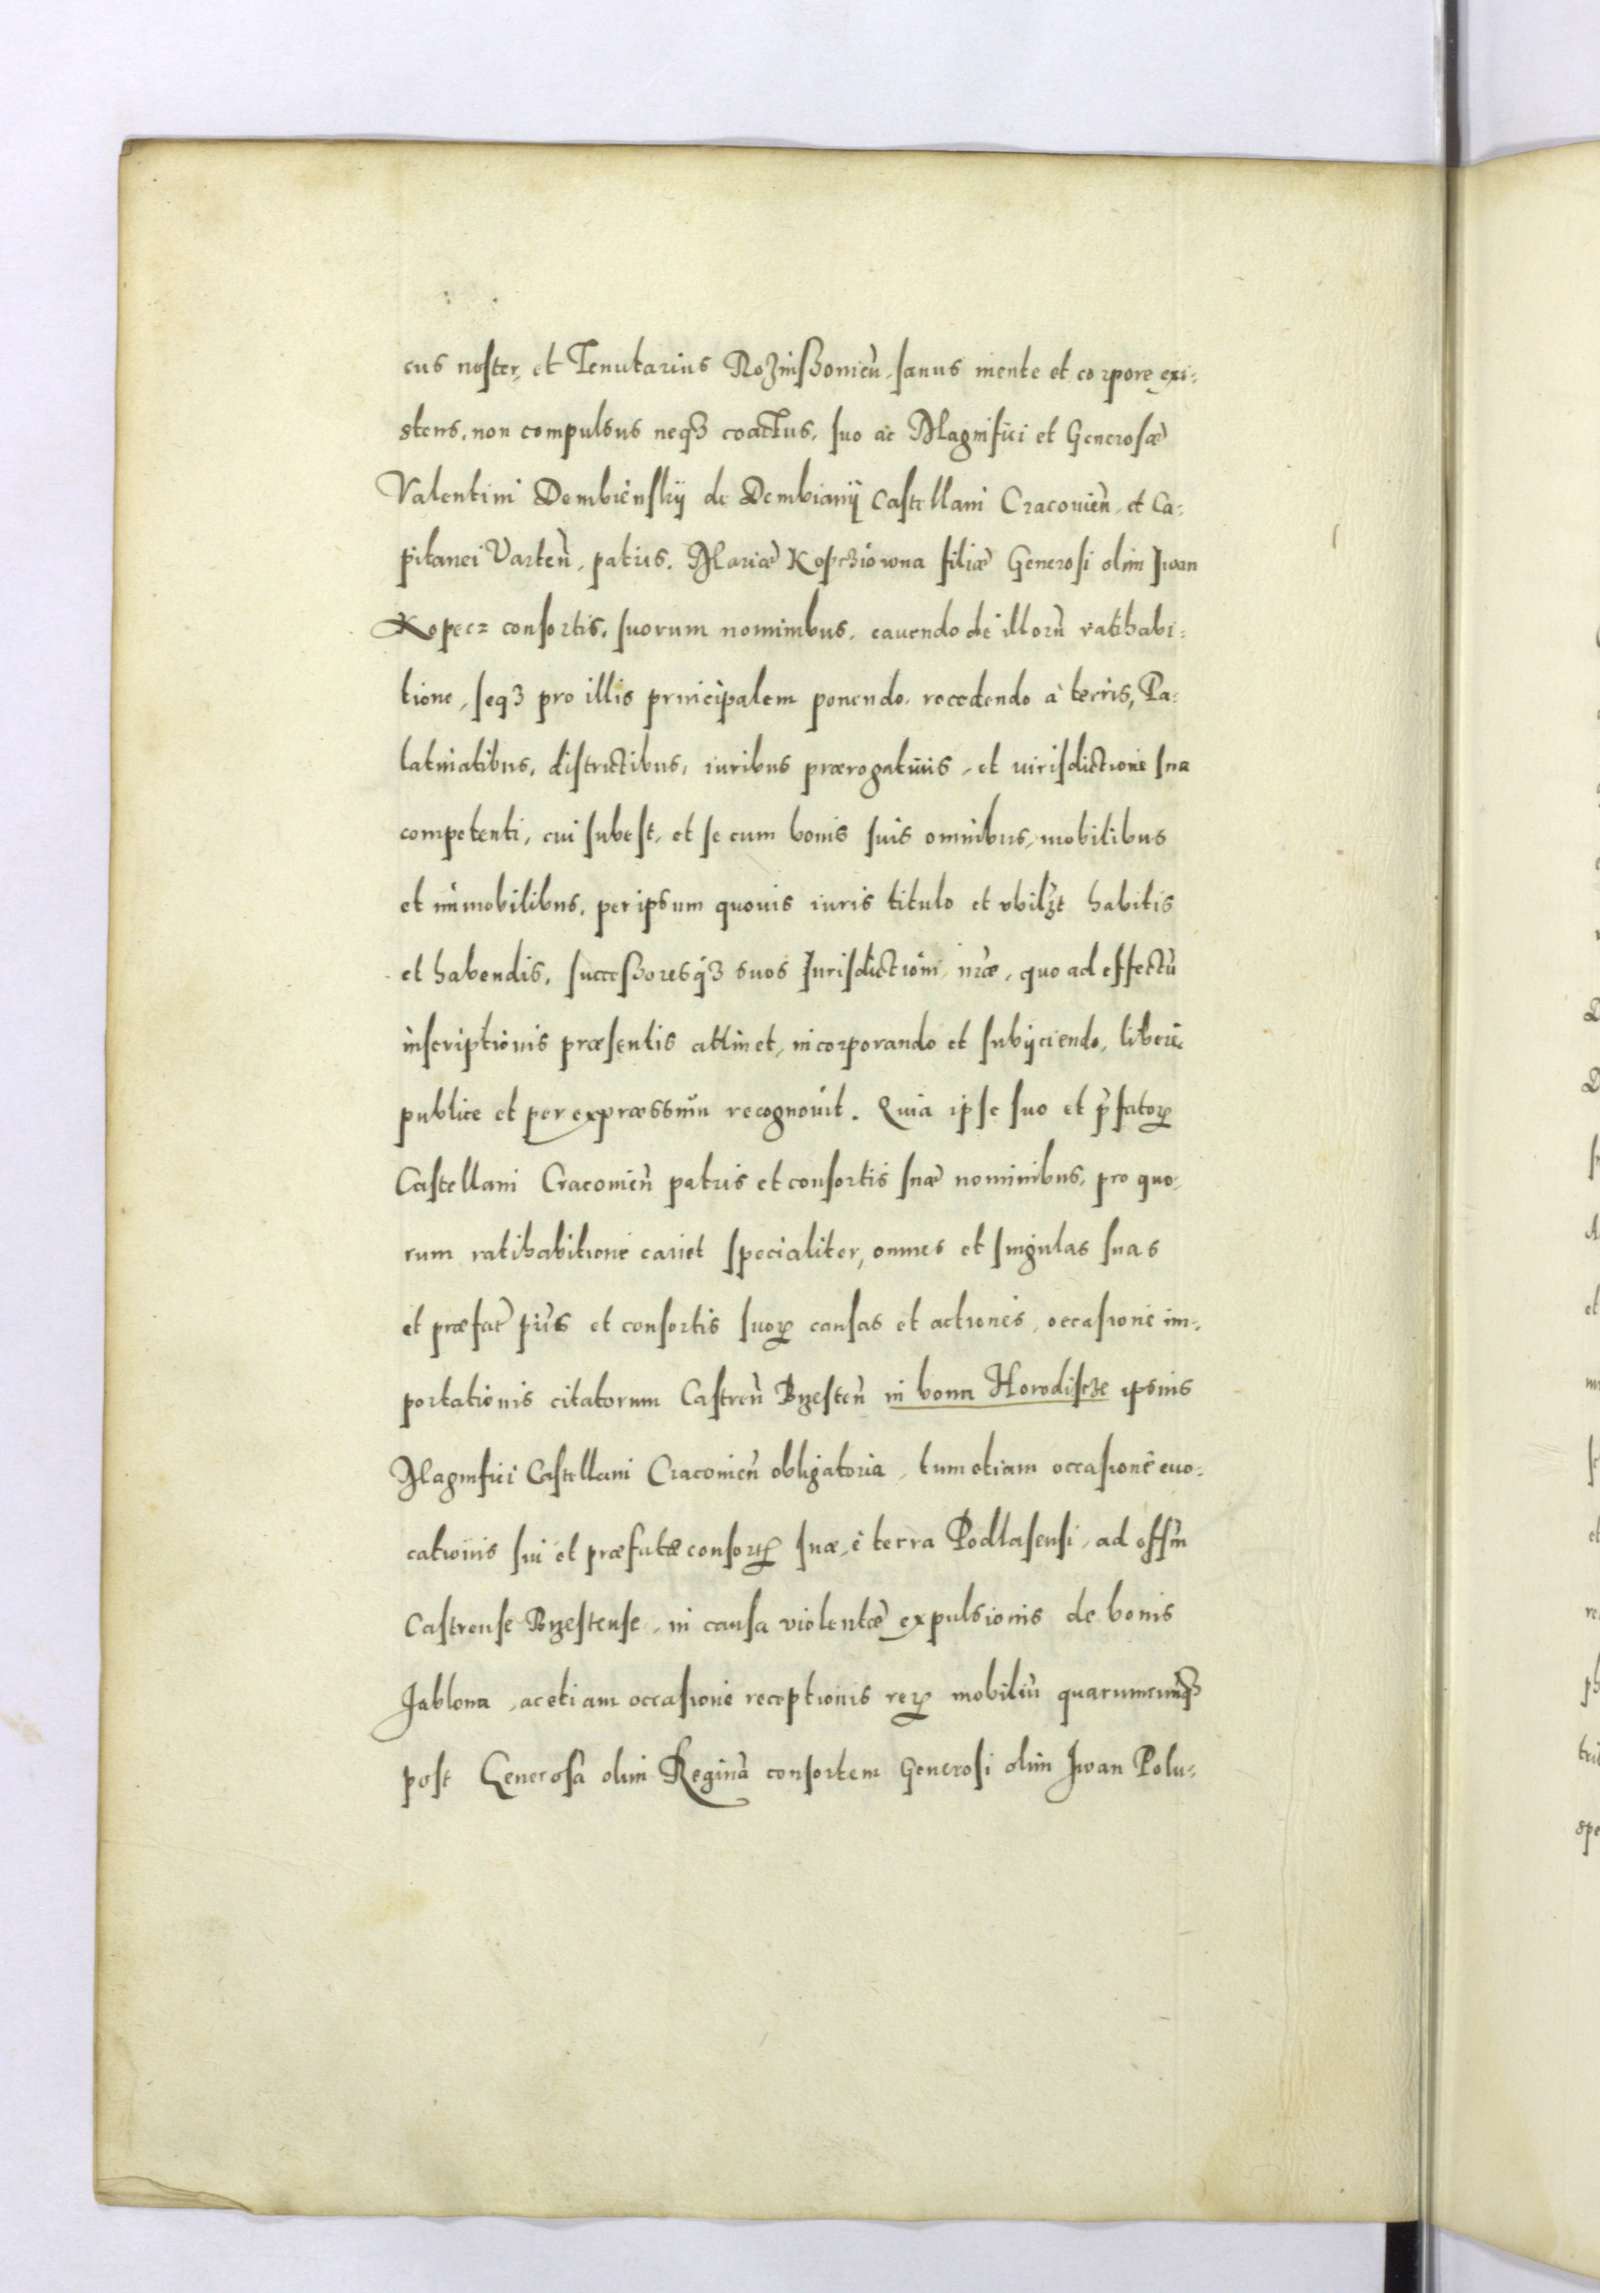 cus noster, et Tenutarius Rozniszouien̄, sanus mente et corpore exi:
stens, non compulsus neqȝ coactus, suo ac Magnifici et Generosæ
Valentini Dembienskij de Dembianij Castellani Cracouien̄, et Ca:
pitanei Varten̄, patris, Mariæ Kopcziowna filiæ Generosi olim Jwan
Kopecz consortis, suorum nominibus, cauendo de illorū ratihabi:
tione, seqȝ pro illis principalem ponendo, recedendo à terris, Pa:
latinatibus, districtibus, iuribus prærogatiuis, et iurisdictione sua
competenti, cui subest, et se cum bonis suis omnibus, mobilibus
et immobilibus, per ipsum quouis iuris titulo et vbilȝt habitis
et habendis, successoresqȝ suos Jurisdictioni nr̄æ, quo ad effectū
inscriptionis præsentis attinet, incorporando et subijciendo, libere
publice et per expræssum recognouit. Quia ipse suo et p̄fatoꝝ
Castellani Cracouien̄ patris et consortis suæ nominibus, pro quo,
rum ratihabitione cauet specialiter, omnes et singulas suas
et præfat̄ pr̄is et consortis suoꝝ causas et actiones, occasione im:
portationis citatorum Castren̄ Brzesten̄ in bona Horodiscze ipsius
Magnifici Castellani Cracouien̄ obligatoria, tum etiam occasione euo:
cationis sui et præfatæ consort̄ suæ, è terra Podlasensi, ad offm̄
Castrense Brzestense, in causa violentæ expulsionis de bonis
Jablona, ac etiam occasione receptionis reꝝ mobiliū quarumcunqȝ
post Generosā olim Reginā consortem Generosi olim Jwan Polu: